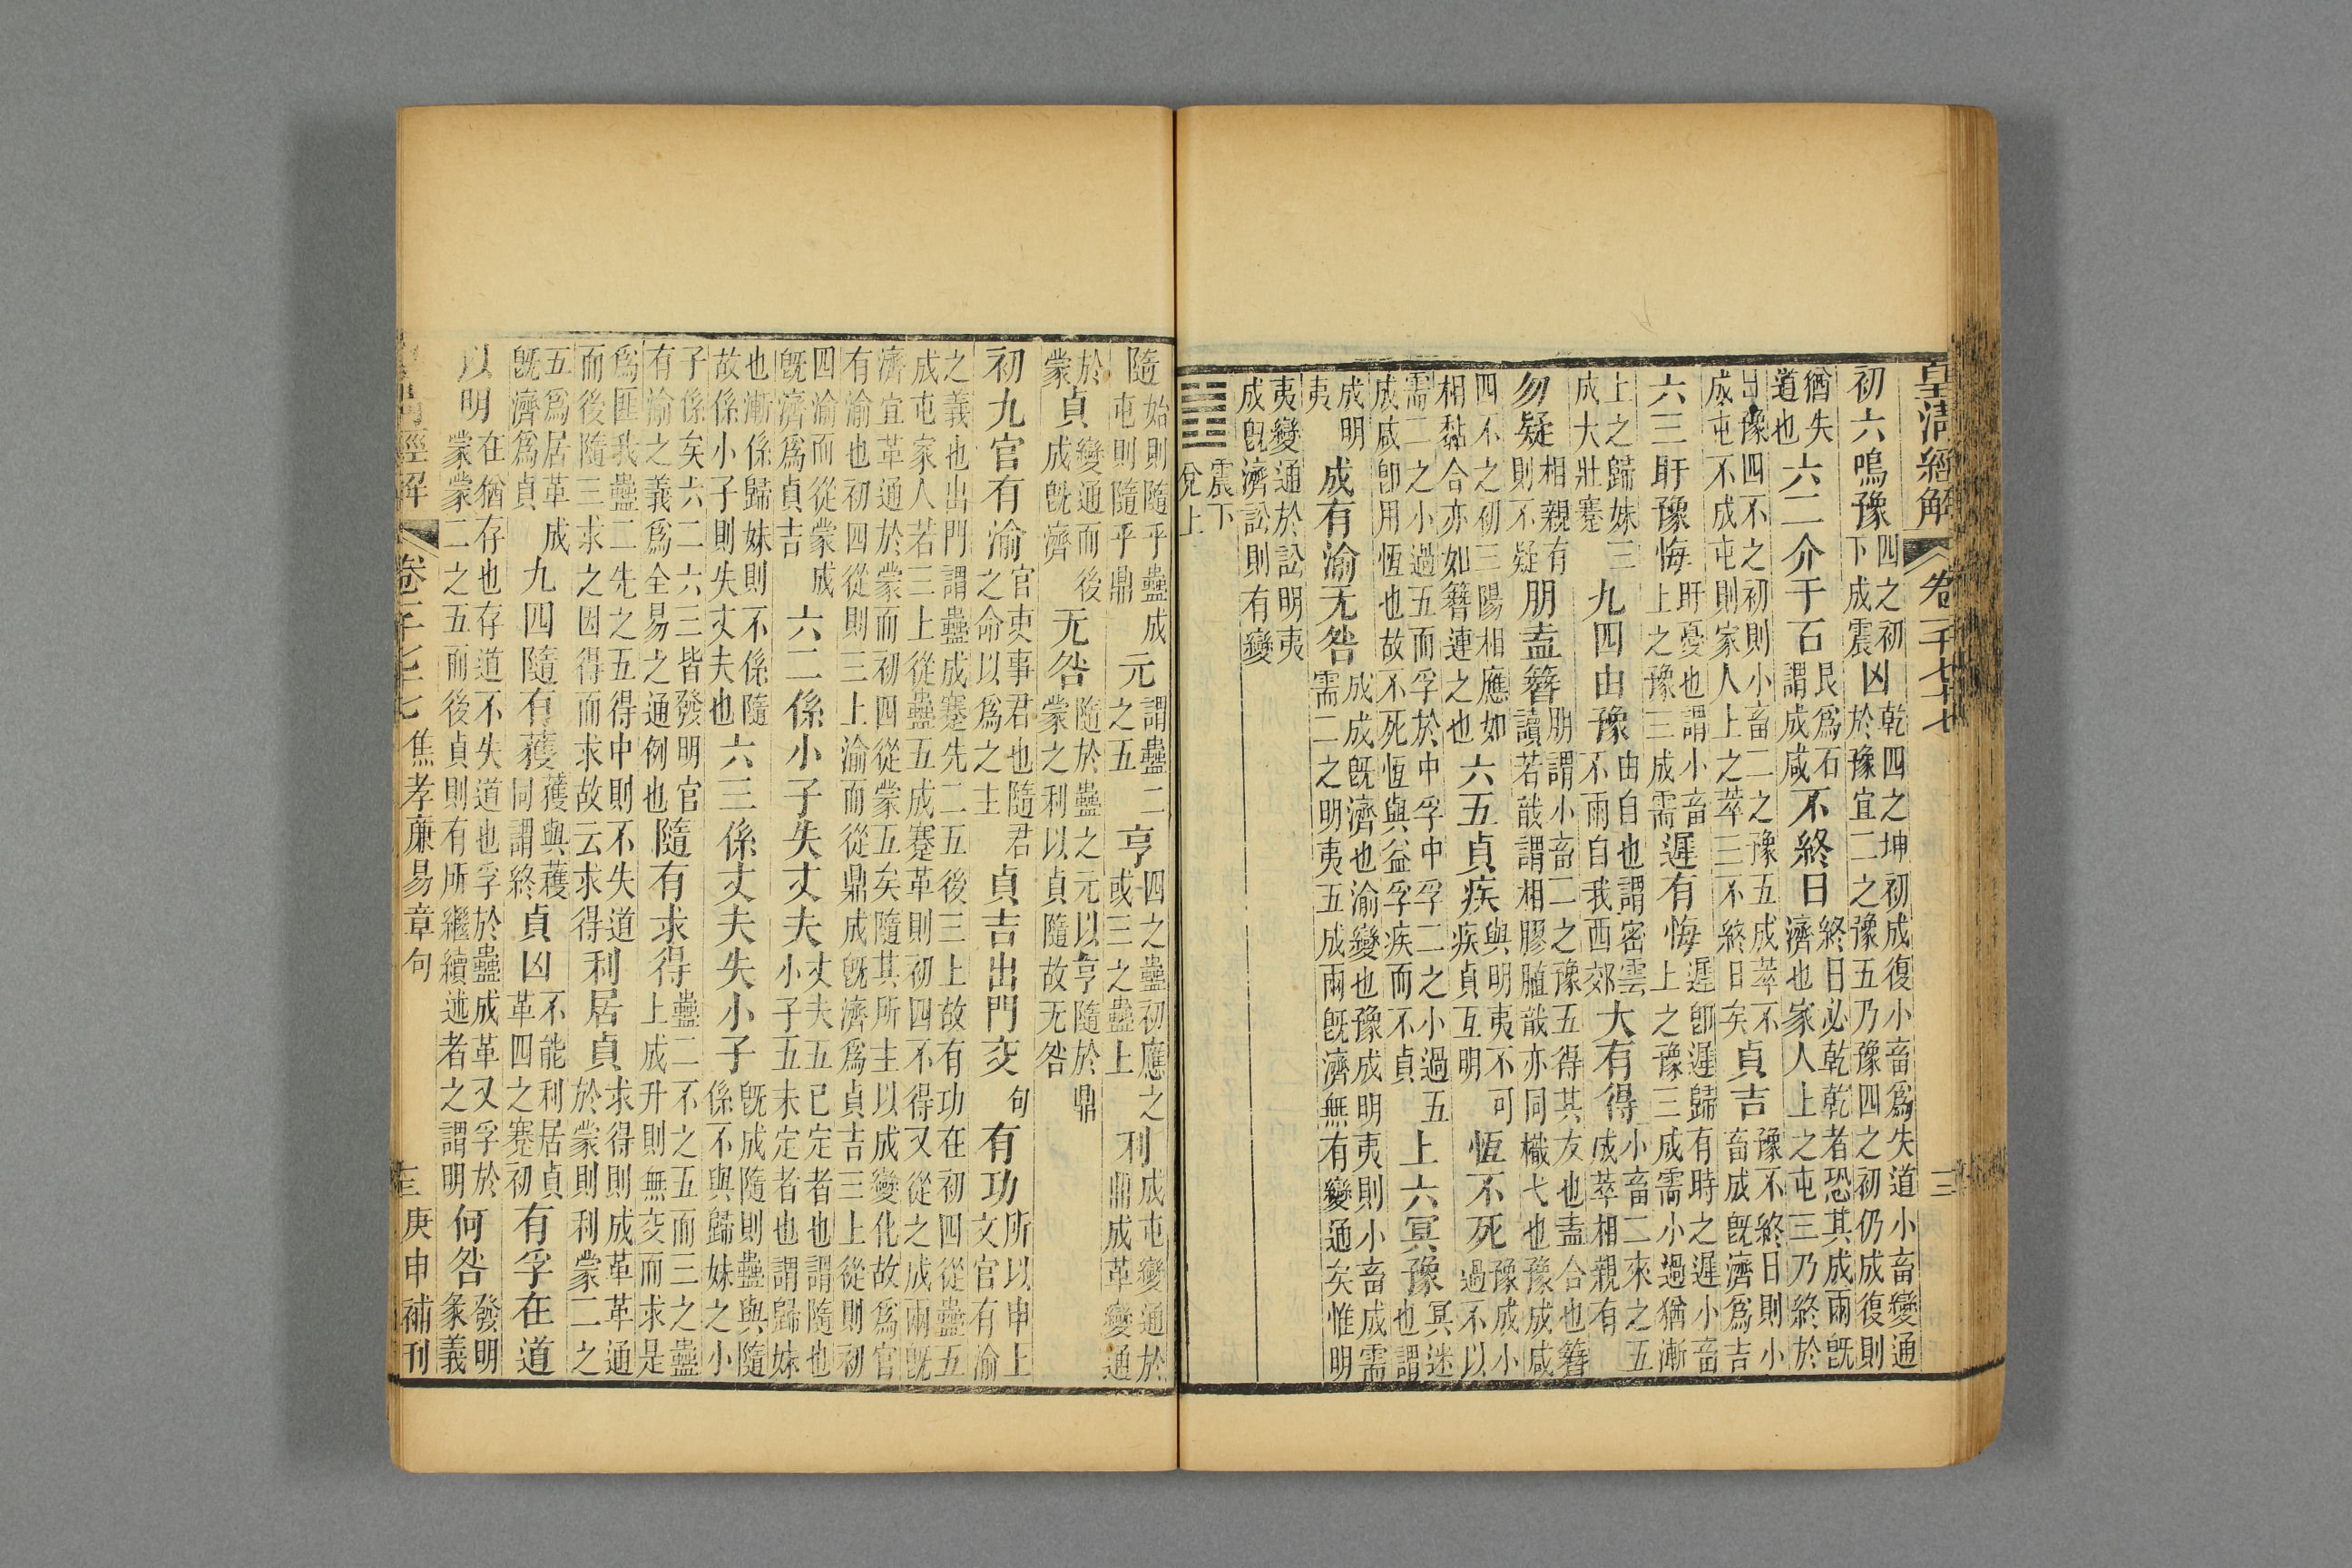 皇清經解 卷一千七十七 三
初六鳴豫四之初下成震凶乾四之坤初成復小畜爲失道小畜變通於豫宜二之豫五乃豫四之初仍成復則
猶失道也六二介于石艮爲石謂成咸不終日終日必乾乾者恐其成兩旣濟也家人上之屯三乃終於
出豫四不之初則小畜二之豫五成萃不成屯不成屯則家人上之萃三不終日矣貞吉豫不終日則小畜成旣濟爲吉
六三盱豫悔盱憂也謂小畜上之豫三成需遲有悔遲卽遲歸有時之遲小畜上之豫三成需小過猶漸
上之歸妹三成大壯蹇九四由豫由自也謂密雲不雨自我西郊大有得小畜二來之五成萃相親有
勿疑相親有則不疑朋盍簪朋謂小畜二之豫五得其友也盍合也簪讀若戠謂相膠膱戠亦同樴弋也豫成咸
四不之初三陽相應如相黏合亦如簪連之也六五貞疾與明夷不可疾貞互明恆不死豫成小過不以
需二之小過五而孚於中孚中孚二之小過五成咸卽用恆也故不死恆與益孚疾而不貞上六冥豫冥迷也謂
成明夷成有渝无咎成成旣濟也渝變也豫成明夷則小畜成需需二之明夷五成兩旣濟無有變通矣惟明
夷變通於訟明夷成旣濟訟則有變
䷐震下兌上
隨始則隨乎蠱成屯則隨乎鼎元謂蠱二之五亨四之蠱初應之或三之蠱上利成屯變通於鼎成革變通
於蒙貞變通而後成旣濟无咎隨於蠱之元以亨隨於鼎蒙之利以貞隨故无咎
初九官有渝官吏事君也隨君之命以爲之主貞吉出門交句有功所以申上文官有渝
之義也出門謂蠱成蹇先二五後三上故有功在初四從蠱五成屯家人若三上從蠱五成蹇革則初四不得又從之成兩旣
濟宜革通於蒙而初四從蒙五矣隨其所主以成變化故爲官有渝也初四從則三上渝而從鼎成旣濟爲貞吉三上從則初
四渝而從蒙成旣濟爲貞吉六二係小子失丈夫丈夫五已定者也謂隨也小子五未定者也謂歸妹
也漸係歸妹則不係隨故係小子則失丈夫也六三係丈夫失小子旣成隨則蠱與隨係不與歸妹之小
子係矣六二六三皆發明官有渝之義爲全易之通例也隨有求得蠱二不之五而三之蠱上成升則無交而求是
爲匪我蠱二先之五得中則不失道而後隨三求之因得而求故云求得利居貞求得則成革革通於蒙則利蒙二之
五爲居革成旣濟爲貞九四隨有獲獲與穫同謂終貞凶不能利居貞革四之蹇初有孚在道
以明在猶存也存道不失道也孚於蠱成革又孚於蒙蒙二之五而後貞則有所繼續述者之謂明何咎發明彖義
卷一千七十七 焦孝廉易章句 三 庚申補刊